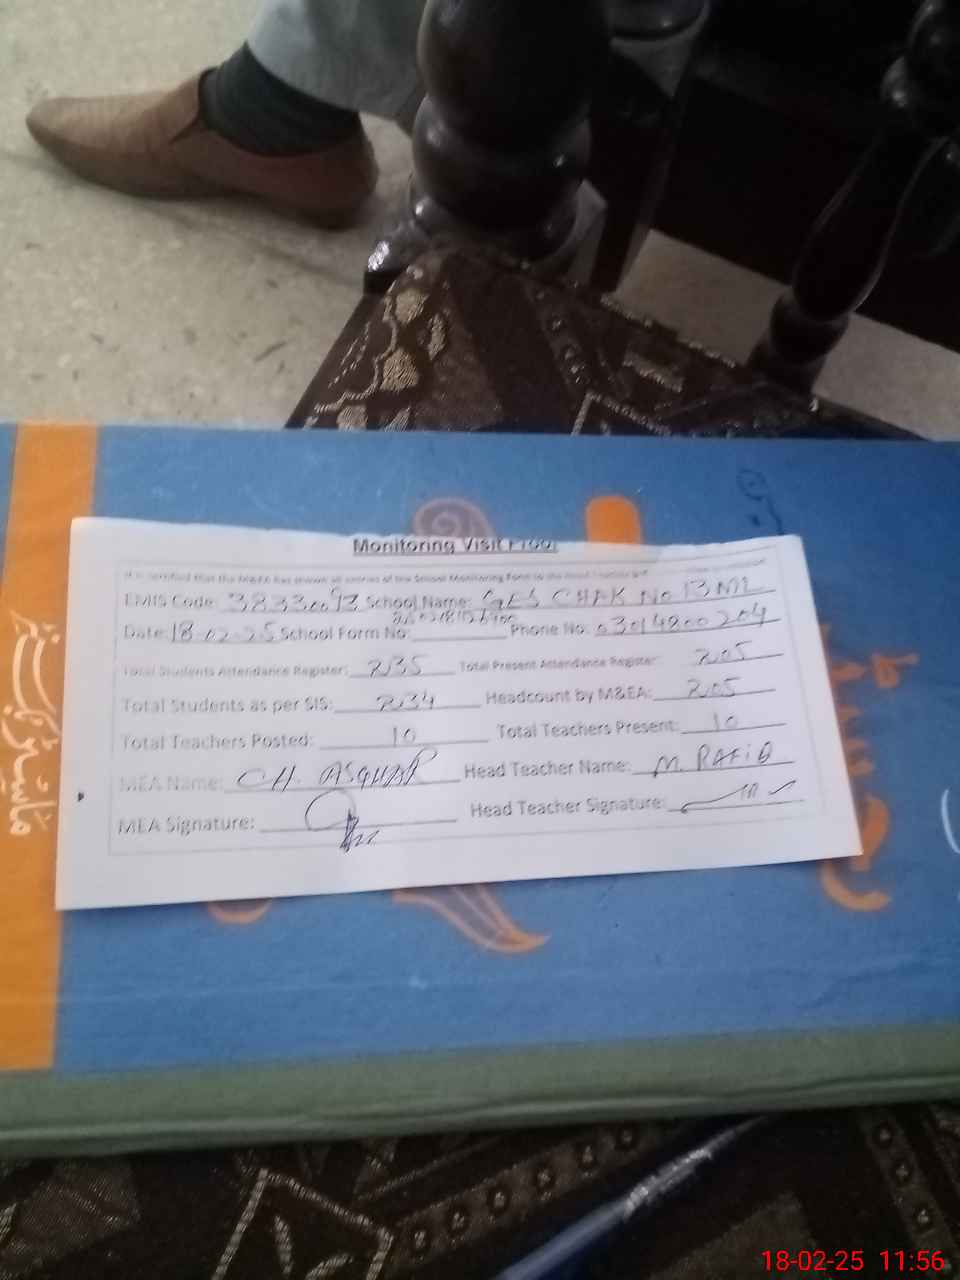 Monitoring Visit Proof
It is certified that the M&EA has shown all entries of the School Monitoring Form to the Head Teacher
EMIS Code: 38330093 School Name: GES CHAK No 13 ML
Date: 18-02-25 School Form No: Phone No: 03014800204
Total Students Attendance Register: 235 Total Present Attendance Register: 205
Total Students as per SIS: 234 Headcount by M&EA: 205
Total Teachers Posted: 10 Total Teachers Present: 10
MEA Name: CH. ASGHAR Head Teacher Name: M. RAFIQ
MEA Signature: Head Teacher Signature:
18-02-25 11:56